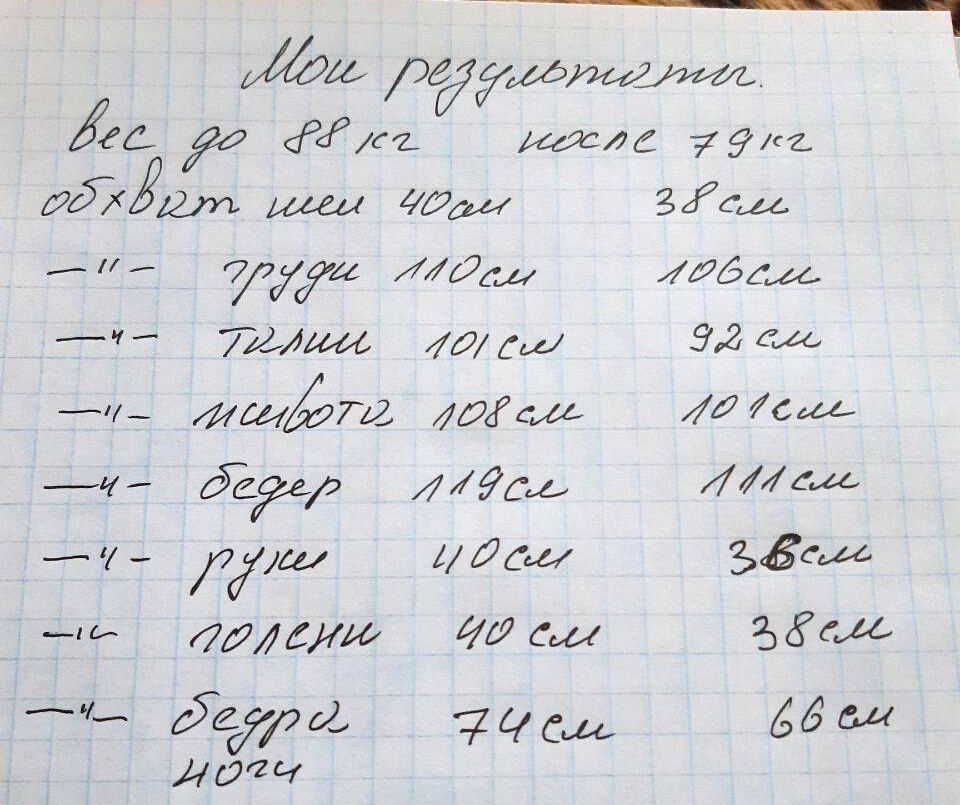 Мои результаты.
вес до 88 кг после 79 кг
обхват шеи 40 см 38 см
—"— груди 110 см 106 см
—"— талии 101 см 92 см
—"— живота 108 см 101 см
—"— бедер 119 см 111 см
—"— руки 40 см 36 см
—"— голени 40 см 38 см
—"— бедра 74 см 66 см
ноги